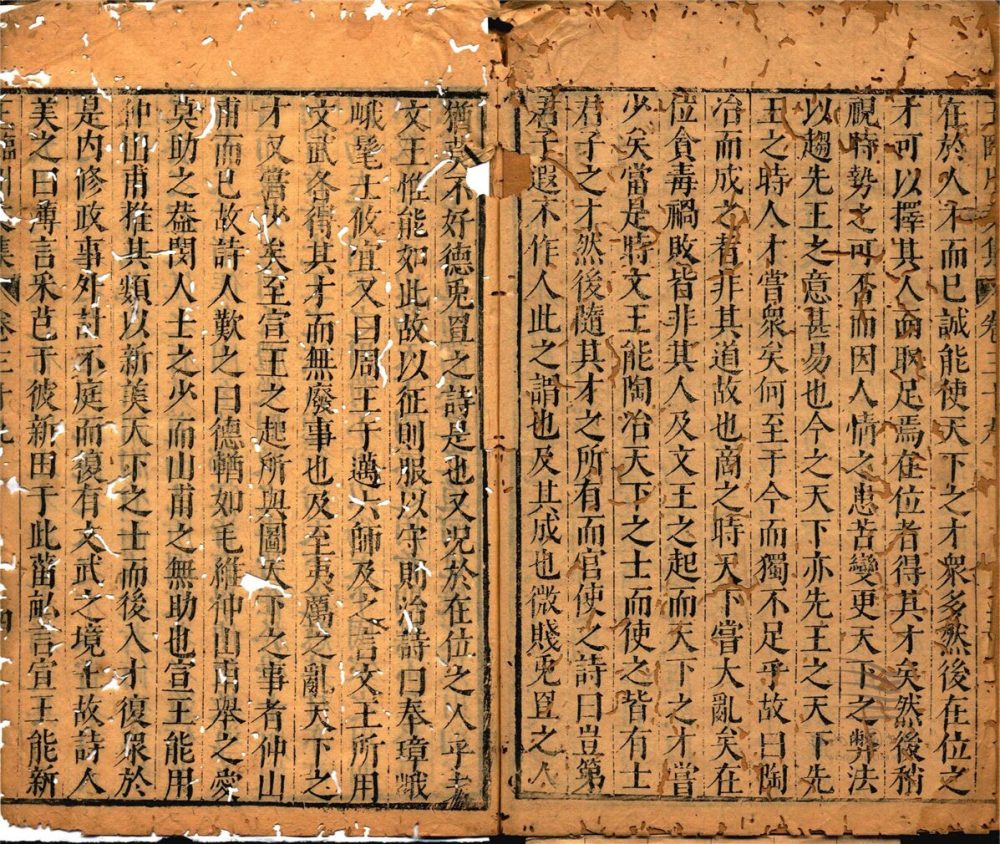 卷三十九
在於人才而已誠能使天下之才衆多然後在位之
才可以擇其人而取足焉在位者得其才矣然後稍
視時勢之可否而因人情之患苦變更天下之弊法
以趨先王之意甚易也今之天下亦先王之天下先
王之時人才嘗衆矣何至于今而獨不足乎故曰陶
冶而成之者非其道故也商之時天下嘗大亂矣在
位貪毒禍敗皆非其人及文王之起而天下之才嘗
少矣當是時文王能陶冶天下之士而使之皆有士
君子之才然後隨其才之所有而官使之詩曰豈第
君子遐不作人此之謂也及其成也微賤兎罝之人
猶莫不好德兎罝之詩是也又況於在位之人乎夫
文王惟能如此故以征則服以守則治詩曰奉璋峨
峨髦士攸宜又曰周王于邁六師及之言文王所用
文武各得其才而無廢事也及至夷厲之亂天下之
才又嘗少矣至宣王之起所與圖天下之事者仲山
甫而已故詩人歎之曰德輶如毛維仲山甫舉之愛
莫助之葢閔人士之少而山甫之無助也宣王能用
仲山甫推其類以新美天下之士而後人才復衆於
是内修政事外討不庭而復有文武之境土故詩人
美之曰薄言采芑于彼新田于此菑畝言宣王能新
卷三十九 四